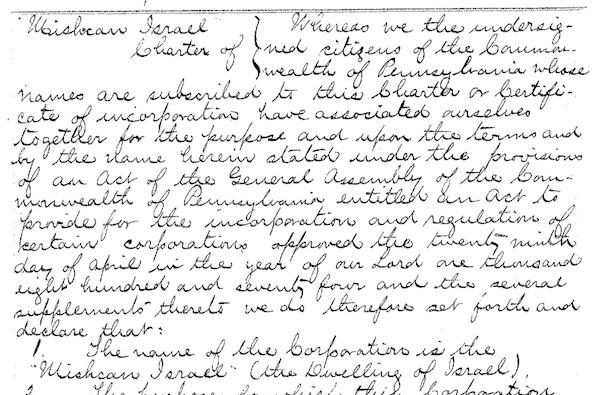 "Mishcan Israel Whereas we the undersig-
Charter of } ned citizens of the Common-
wealth of Pennsylvania whose
names are subscribed to this Charter or Certifi-
cate of incorporation have associated ourselves
together for the purpose and upon the terms and
by the name herein stated under the provisions
of an Act of the General Assembly of the Com-
monwealth of Pennsylvania entitled an Act to
provide for the incorporation and regulation of
certain corporations approved the twenty ninth
day of April in the year of our Lord one thousand
eight hundred and seventy four and the several
supplements thereto we do therefore set forth and
declare that:
1. The name of the Corporation is the
"Mishcan Israel" (the Dwelling of Israel).
2. The purpose for which this Corporation